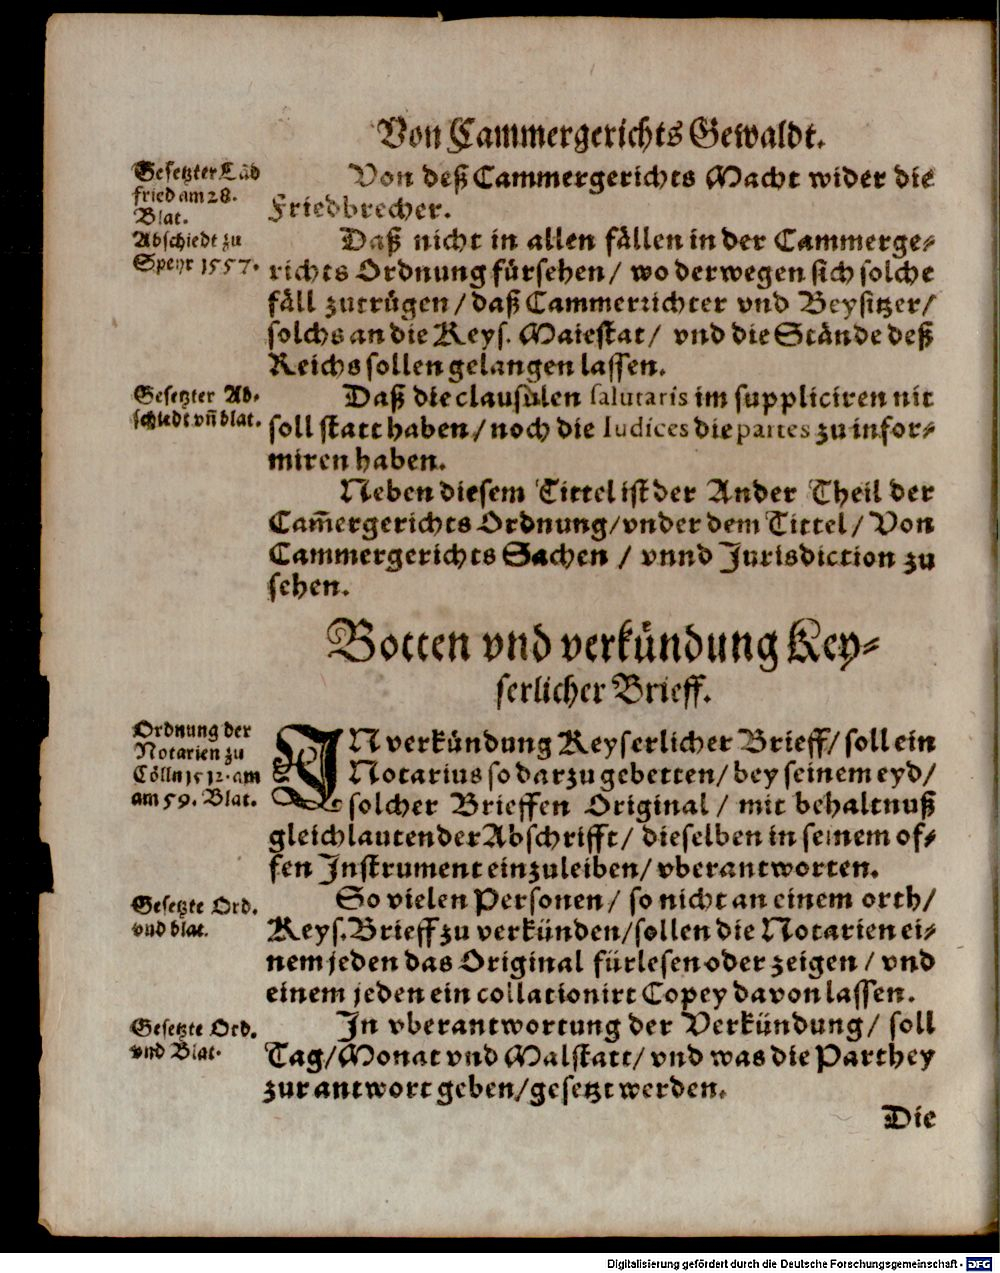 Von Cammergerichts Gewaldt.
Gesetzter Läd
fried am 28.
Blat.
Von deß Cammergerichts Macht wider die
Friedbrecher.
Abschiedt zu
Speyr 1557.
Daß nicht in allen fällen in der Cammerge-
richts Ordnung fürsehen/ wo derwegen sich solche
fäll zutrügen/ daß Cammerrichter vnd Beysitzer/
solchs an die Keys. Maiestat/ vnd die Stände deß
Reichs sollen gelangen lassen.
Gesetzter Ab-
schiedt vñ blat.
Daß die clausulen salutaris im suppliciren nit
soll statt haben/ noch die Iudices die partes zu infor-
miren haben.
Neben diesem Tittel ist der Ander Theil der
Cam̃ergerichts Ordnung/ vnder dem Tittel/ Von
Cammergerichts Sachen / vnnd Jurisdiction zu
sehen.
Botten vnd verkündung Key-
serlicher Brieff.
Ordnung der
Notarien zu
Cölln 1512. am
am 59. Blat.
IN verkündung Keyserlicher Brieff/ soll ein
Notarius so darzu gebetten/ bey seinem eyd/
solcher Brieffen Original / mit behaltnuß
gleichlautender Abschrifft/ dieselben in seinem of-
fen Instrument einzuleiben/ vberantworten.
Gesetzte Ord.
vnd blat.
So vielen Personen/ so nicht an einem orth/
Keys. Brieff zu verkünden/ sollen die Notarien ei-
nem jeden das Original fürlesen oder zeigen / vnd
einem jeden ein collationirt Copey davon lassen.
Gesetzte Ord.
vnd Blat.
In vberantwortung der Verkündung/ soll
Tag/ Monat vnd Malstatt/ vnd was die Parthey
zur antwort geben/ gesetzt werden.
Die
Digitalisierung gefördert durch die Deutsche Forschungsgemeinschaft - DFG